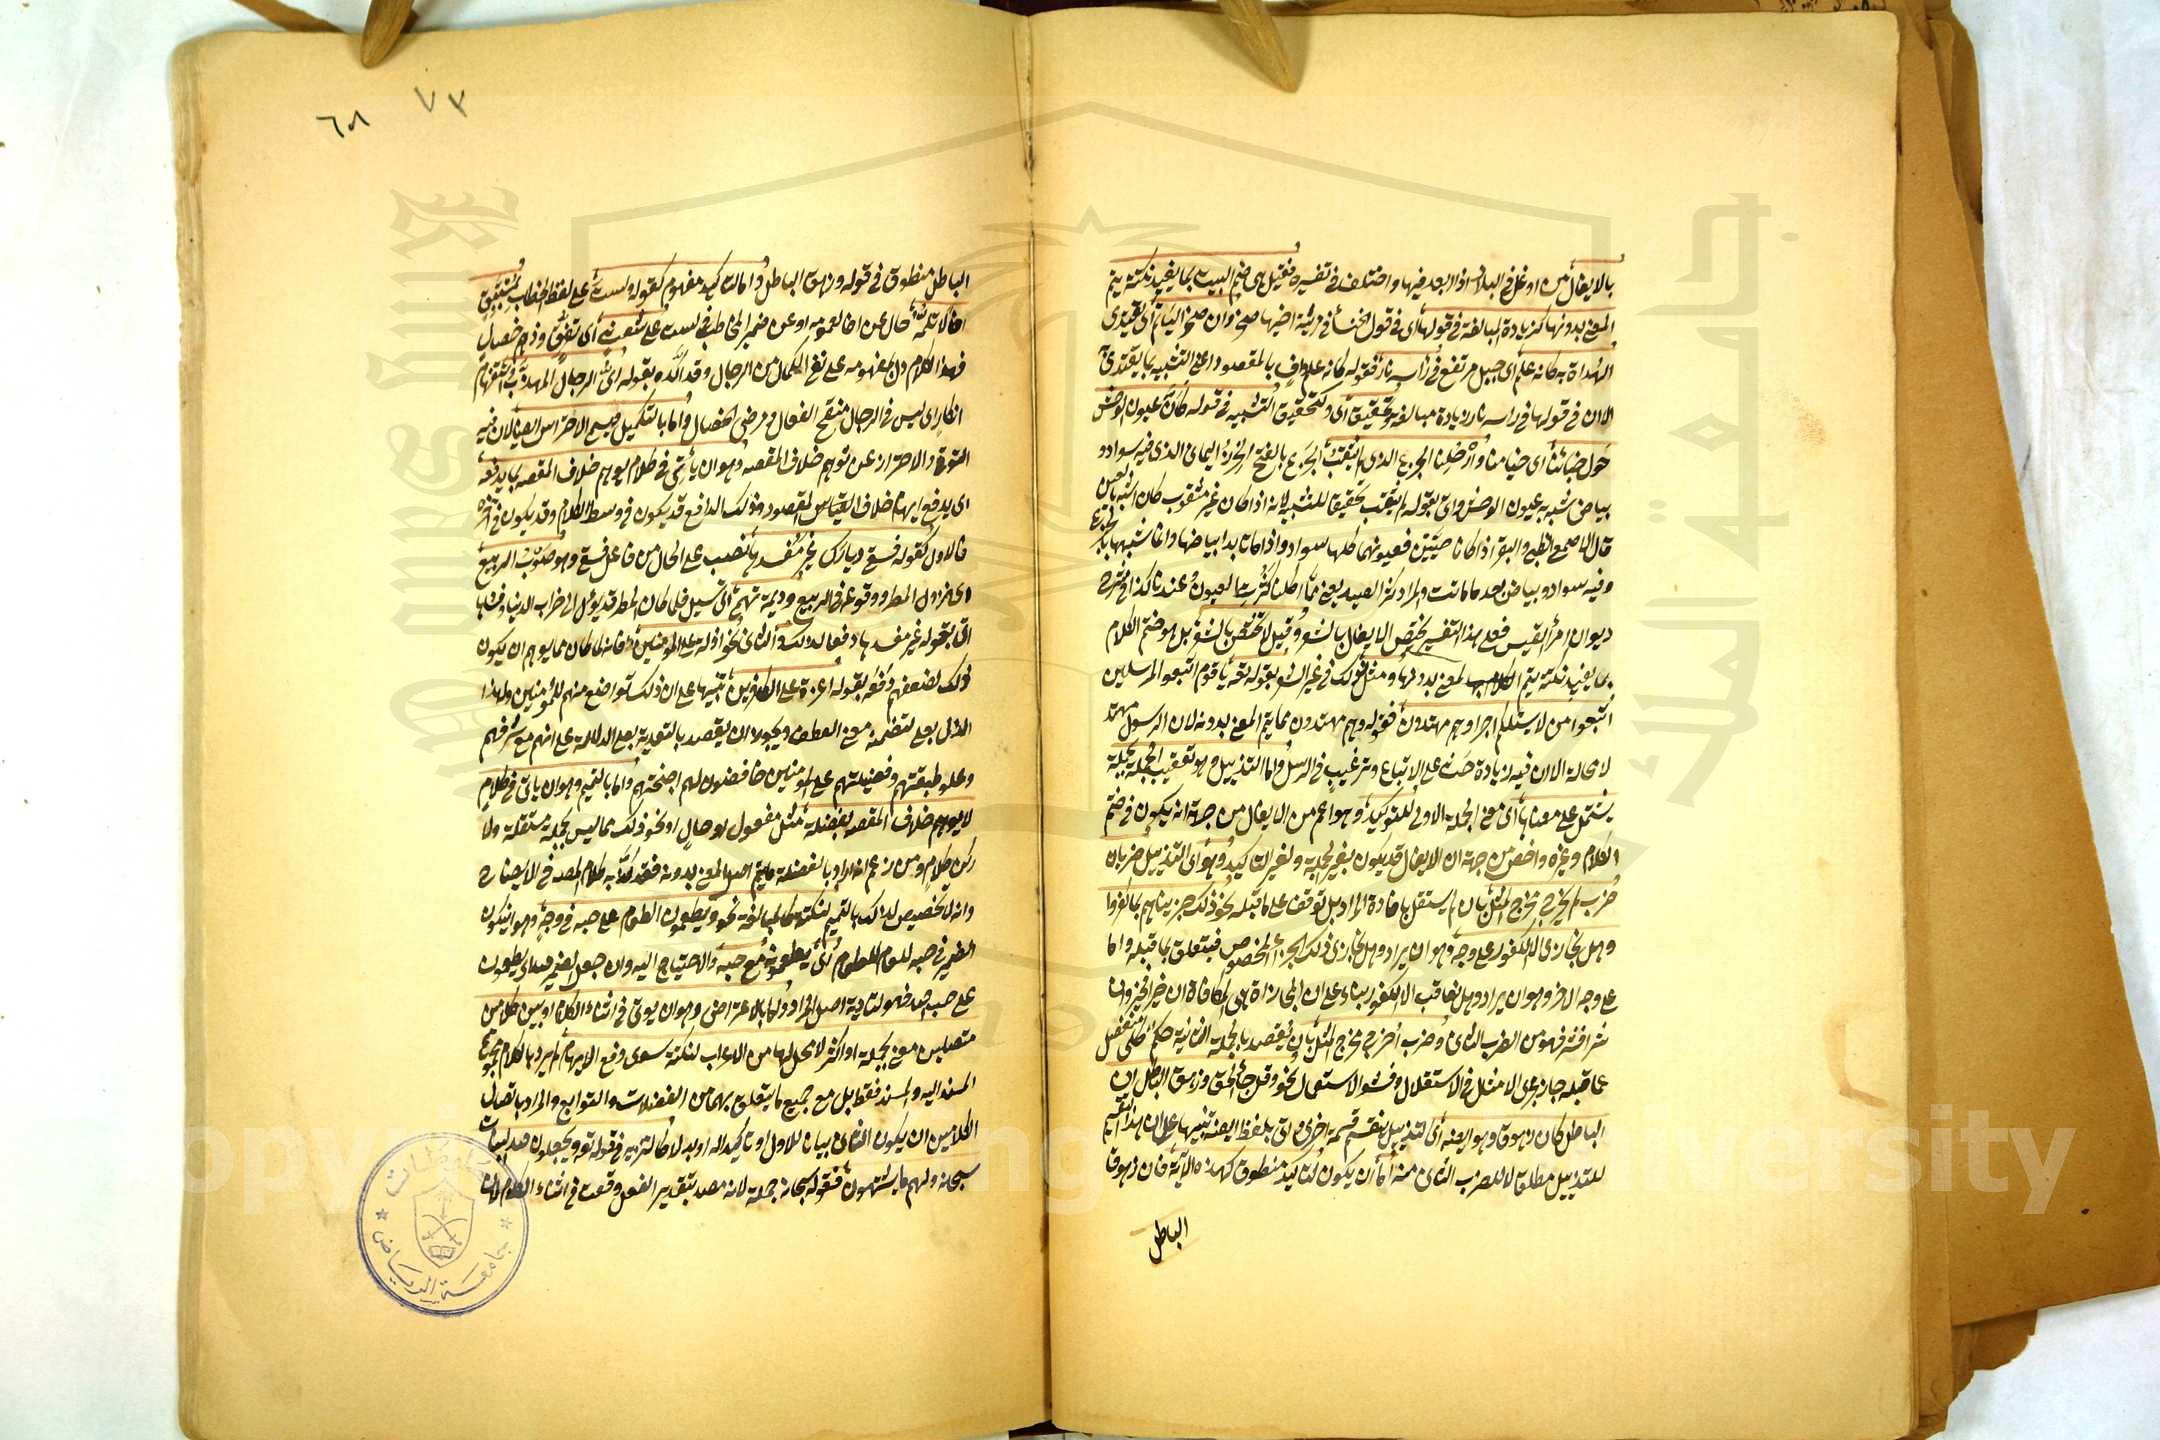 بالايغال من اوغل في البلاد اذا ابعد فيها واختلف في تفسيره فقيل هي ختم البيت بما يفيد نكتة يتم
المعنى بدونها كزيادة المبالغة في قولها أي في قول الخنساء في مرثية اخيها صخر وان صخرا لتأتم أي تقتدي
الهداة به كانه علم اي جبل مرتفع في رأسه نار فقوله كانه علم واف بالمقصود اعني التشبيه بما يقتدى به
الا ان في قولها في راسه نار زيادة مبالغة وتحقيق أي وكتحقيق التشبيه في قوله كأن عيون الوحش
حول خبائنا اي خيامنا وأرحلنا الجزع الذي لم يثقب الجزع بالفتح الخرز اليماني الذي فيه سواد و
بياض شبه به عيون الوحش واتى بقوله لم يثقب تحقيقا للتشبيه لانه اذا كان غير مثقوب كان اشبه بالعين
قال الاصمعي الظبي والبقر اذا كانا حيين فعيونهما كلها سواد واذا ماتا بدا بياضها وانما شبهها بالجزع
وفيه سواد وبياض بعد ما ماتت والمراد كثرة الصيد يعني مما اكلنا كثرت العيون عندنا كذا في شرح
ديوان امرأ القيس فعلى هذا التفسير يختص الايغال بالشعر وقيل لا يختص بالشعر بل هو ختم الكلام
بما يفيد نكتة يتم المعنى بدونها ومثل لذلك في غير الشعر بقوله تعه يا قوم اتبعوا المرسلين
اتبعوا من لا يسئلكم اجرا وهم مهتدون فقوله وهم مهتدون مما يتم المعنى بدونه لان الرسول مهتد
لا محالة الا ان فيه زيادة حث على الاتباع وترغيب في الرسل واما التذييل وهو تعقيب الجملة بجملة
يشتمل على معناها أي معنى الجملة الاولى للتوكيد وهو اعم من الايغال من جهة انه يكون في ختم
الكلام وغيره واخص من جهة ان الايغال قد يكون بغير الجملة ولغير التاكيد وهو أي التذييل ضربان
ضرب لم يخرج مخرج المثل بان لم يستقل بافادة المراد بل توقف على ما قبله نحو ذلك جزيناهم بما كفروا
وهل نجازي الا الكفور على وجه وهو ان يراد وهل نجازي ذلك الجزاء المخصوص فيتعلق بما قبله واما
على وجه الاخر وهو ان يراد وهل نعاقب الا الكفور بناء على ان المجازاة هي المكافاة ان خيرا فخير وان
شرا فشر فهو من الضرب الثاني وضرب أخرج مخرج المثل بان يقصد بالجملة الثانية حكم كلي منفصل
عما قبله جار مجرى الامثال في الاستقلال وفشو الاستعمال نحو وقل جاء الحق وزهق الباطل ان
الباطل كان زهوقا وهو ايضه أي التذييل ينقسم قسمة اخرى واتى بلفظ ايضه تنبيها على ان هذا التقسيم
للتذييل مطلقا لا للضرب الثاني منه أما أن يكون لتأكيد منطوق كهذه الآية فان زهوق
الباطل
٦٨ ٧٣
الباطل منطوق في قوله وزهق الباطل واما لتاكيد مفهوم كقوله ولست على لفظ الخطاب بمستبق
اخا لا تلمه حال عن اخا لعمومه او عن ضمير المخاطب في لست على شعث أي تفرق وذميم خصال
فهذا الكلام دل بمفهومه على نفي الكامل من الرجال وقد اكده بقوله أي الرجال المهذب استفهام
انكار اي ليس في الرجال منقح الفعال ومرضي الخصال واما بالتكميل ويسمى الاحتراس ايضا لان فيه
التوقي والاحتراز عن توهم خلاف المقصود وهو ان يأتي في كلام يوهم خلاف المقصود بما يدفعه
اي يدفع ايهام خلاف المقصود وذلك الدافع قد يكون في وسط الكلام وقد يكون في آخره
فالاول كقوله فسقى ديارك غير مفسدها نصب على الحال من فاعل سقى وهو صوب الربيع
اي نزول المطر ووقوعه في الربيع وديمة تهمي أي تسيل فلما كان المطر قد يؤل الى خراب الديار وفسادها
اتى بقوله غير مفسدها دفعا لذلك والثاني نحو اذلة على المؤمنين فانه لما كان مما يوهم ان يكون
ذلك لضعفهم دفعه بقوله اعزة على الكافرين تنبيها على ان ذلك تواضع منهم للمؤمنين ولهذا
الذل بعلى لتضمنه معنى العطف ويجوز ان يقصد بالتعدية بعلى الدلالة على انهم مع شرفهم
وعلو طبقتهم وفضيلتهم على المؤمنين خافضون لهم اجنحتهم واما بالتتميم وهو ان ياتي في كلام
لا يوهم خلاف المقصه بفضلة مثل مفعول او حال او نحو ذلك مما ليس بجملة مستقلة ولا
ركن كلام ومن زعم انه اراد بالفضلة ما يتم اصل المعنى بدونه فقد كذبه كلام المصه في الايضاح
وانه لا تخصيص لذلك بالتتميم لنكتة كالمبالغة نحو ويطعمون الطعام على حبه في وجه وهو ان يكون
الضمير في حبه للطعام أي يطعمونه مع حبه والاحتياج اليه وان جعل الضمير لله اي يطعمون
على حب الله فهو لتادية اصل المراد واما بالاعتراض وهو ان يؤتى في اثناء الكلام او بين كلامين
متصلين معنى بجملة او اكثر لا محل لها من الاعراب لنكتة سوى دفع الايهام لم يرد بالكلام مجموع
المسند اليه والمسند فقط بل مع جميع ما يتعلق بهما من الفضلات والتوابع والمراد باتصال
الكلامين ان يكون الثاني بيانا للاول او تاكيدا له او بدلا كالتنزيه في قوله تعه ويجعلون لله البنات
سبحانه ولهم ما يشتهون فقوله سبحانه جملة لانه مصدر بتقدير الفعل وقعت في اثناء الكلام لان
جامعة الرياض